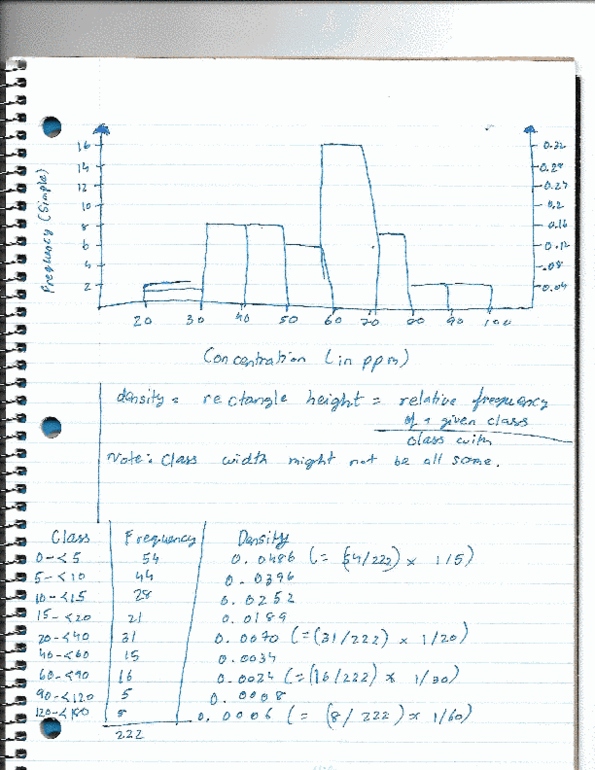 Frequency (Simple)
16
14
12
10
8
6
4
2
0.32
0.28
0.24
0.2
0.16
0.12
.08
0.04
20 30 40 50 60 70 80 90 100
Concentration (in ppm)
density = rectangle height = relative frequency
of a given class
class with
Note: Class width might not be all same.
Class Frequency Density
0-<5 54 0.0486 (= (54/222) × 1/5)
5-<10 44 0.0396
10-<15 28 0.0252
15-<20 21 0.0189
20-<40 31 0.0070 (=(31/222) × 1/20)
40-<60 15 0.0034
60-<90 16 0.0024 (=(16/222) × 1/30)
90-<120 5 0.0008
120-<180 0.0006 (= (8/222) × 1/60)
222